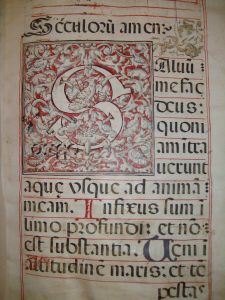 Sęculorũ amen:
S aluũ
me fac
deus:
quoni
am itra
uerunt
aque vsque ad animã
meam: Infixus sum i
limo profundi: et nõ
est substantia. Ueni i
altitudinẽ maris: et tẽ
pestas